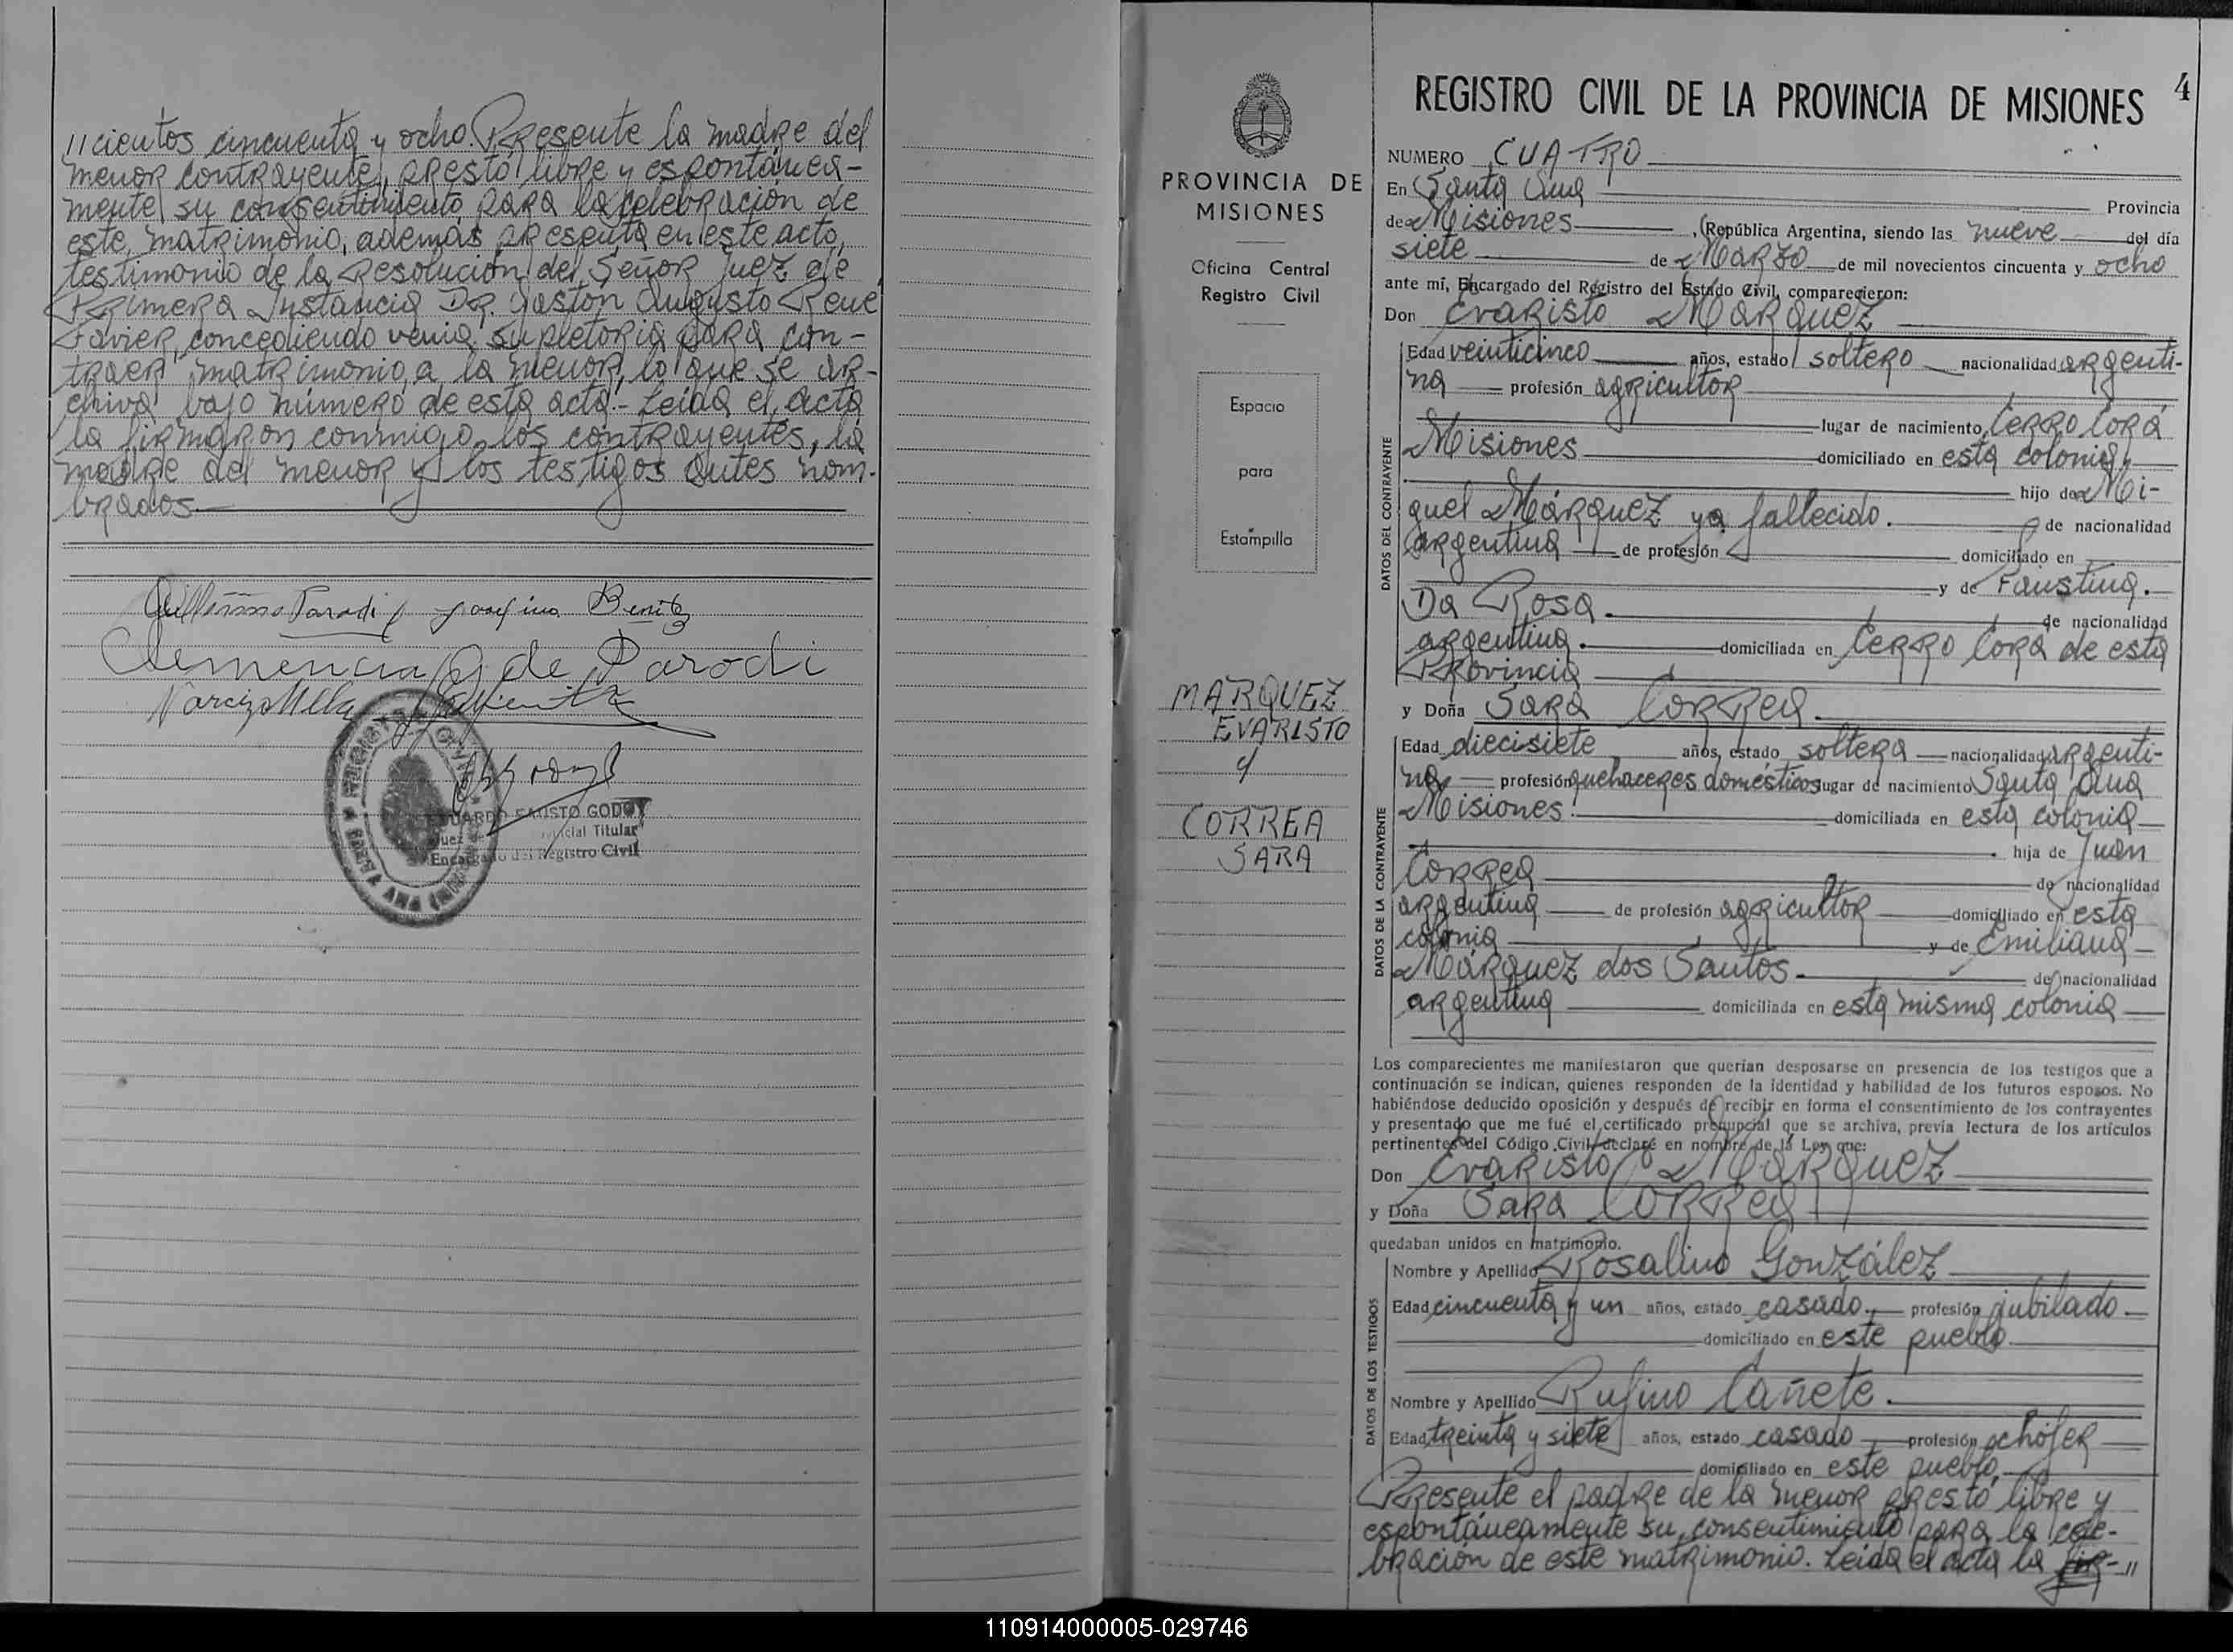 //cientos cincuenta y ocho. Presente la madre del
menor contrayente, prestó libre y espontánea-
mente su consentimiento para la celebración de
este matrimonio, además presenta en este acto,
testimonio de la Resolución del Señor Juez de
Primera Instancia Dr. Gastón Augusto René
Favier, concediendo venia supletoria para con-
traer matrimonio, a la menor, lo que se ar-
chiva bajo número de esta acta.- Leída el acta
la firmaron conmigo, los contrayentes, la
madre del menor y los testigos antes nom-
brados.
Guillermo Parodi Josefina Benitez
Clemencia G de Parodi
EDUARDO FAUSTO GODOY
Juez Titular
Encargado del Registro Civil
PROVINCIA DE
MISIONES
Oficina Central
Registro Civil
Espacio
para
Estampilla
MARQUEZ
EVARISTO
y
CORREA
SARA
REGISTRO CIVIL DE LA PROVINCIA DE MISIONES 4
NUMERO CUATRO
En Santa Ana Provincia
de Misiones , República Argentina, siendo las nueve del día
siete de Marzo de mil novecientos cincuenta y ocho
ante mí, Encargado del Registro del Estado Civil, comparecieron:
Don Evaristo Marquez
DATOS DEL CONTRAYENTE
Edad veinticinco años, estado soltero nacionalidad argenti-
na profesión agricultor
lugar de nacimiento Cerro Corá
Misiones domiciliado en esta colonia,
hijo de Mi-
guel Márquez ya fallecido. de nacionalidad
argentina de profesión domiciliado en
y de Faustina.
Da Rosa. de nacionalidad
argentina. domiciliada en Cerro Corá de esta
Provincia
y Doña Sara Correa.
DATOS DE LA CONTRAYENTE
Edad diecisiete años, estado soltera nacionalidad argenti-
na profesión quehaceres domésticos lugar de nacimiento Santa Ana
Misiones. domiciliada en esta colonia
hija de Juan
Correa de nacionalidad
argentina de profesión agricultor domiciliado en esta
colonia y de Emiliana
Márquez dos Santos. de nacionalidad
argentina domiciliada en esta misma colonia
Los comparecientes me manifestaron que querían desposarse en presencia de los testigos que a
continuación se indican, quienes responden de la identidad y habilidad de los futuros esposos. No
habiéndose deducido oposición y después de recibir en forma el consentimiento de los contrayentes
y presentado que me fué el certificado prenupcial que se archiva, previa lectura de los artículos
pertinentes del Código Civil declaré en nombre de la Ley que:
Don Evaristo Marquez
y Doña Sara Correa
quedaban unidos en matrimonio.
DATOS DE LOS TESTIGOS
Nombre y Apellido Rosalino González
Edad cincuenta y un años, estado casado. profesión jubilado.
domiciliado en este pueblo.
Nombre y Apellido Rufino Cañete.
Edad treinta y siete años, estado casado profesión chófer
domiciliado en este pueblo,
Presente el padre de la menor prestó libre y
espontáneamente su consentimiento para la cele-
bración de este matrimonio. Leída el acta la fir-//
110914000005-029746